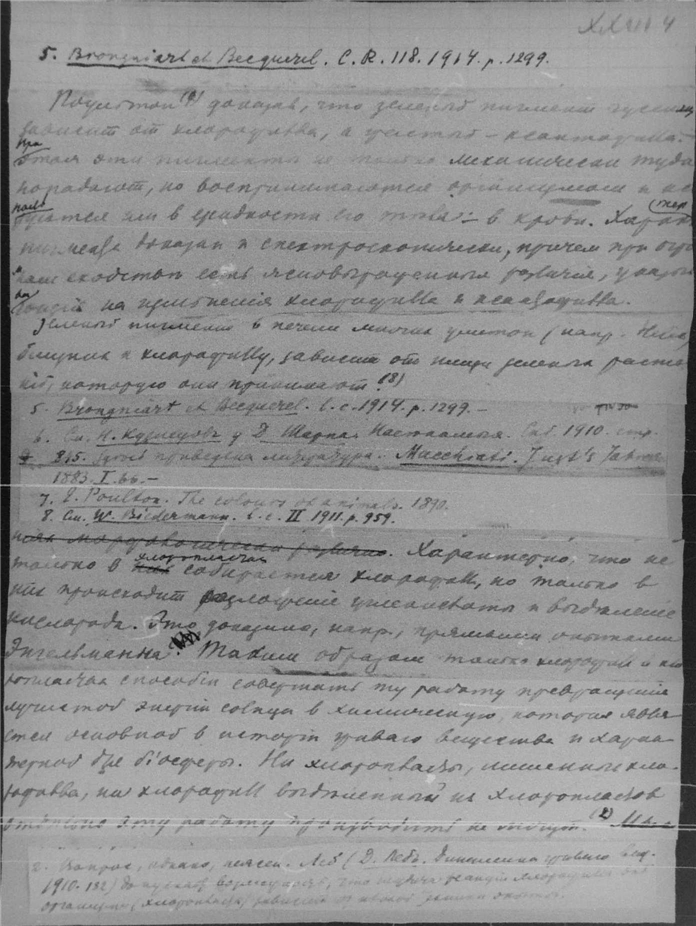 XXIII 4
5. Brongniart et Becquerel. C.R. 118. 1914. p. 1299.
Поультон доказал, что зеленый пигмент гусениц
зависит от хлорофилла, а желтый – ксантофилла.
При этом эти пигменты не только механически туда
попадают, но воспринимаются организмом и
в жидкости его тела – в крови. Характер
пигмента доказан и спектроскопически, причем при
сходстве есть ясно выраженныя различия,
на изменения хлорофилла и ксантофилла.
Зеленый пигмент в печени многих улиток (напр. Helix)
близкий к хлорофиллу, зависит от пищи зеленых расте-
ний, которую они принимают (8)
5. Brongniart et Becquerel. l. c. 1914. p. 1299. –
6. См. Н. Кузнецов у Д. Шарпа. Насекомыя. 1910. стр.
815. Здесь приведена литература. Macchiati. Just's Jahresb.
1883. I. 66. –
7. E. Poulton. The colours of animals. 1890.
8. См. W. Biedermann. l. c. II 1911. p. 959.
морфологически различно. Характерно, что не
только в хлоропластах собирается хлорофилл, но только в
них происходит разложение углекислоты и выделение
кислорода. Это доказано, напр., прямыми опытами
Энгельманна. Таким образом только хлорофилл в хло-
ропластах способен совершать ту работу превращения
лучистой энергии солнца в химическую, которая явля-
ется основной в истории живого вещества и харак-
терной для биосферы. Ни хлоропласты, лишенные хло-
рофилла, ни хлорофилл выделенный из хлоропластов
отдельно эту работу производить не могут. (2)
2. Вопрос, однако, неясен. (Д. Леб. Динамика живого вещ.
1910. 182) допускает возможность, что
организма (хлоропласта) зависит от